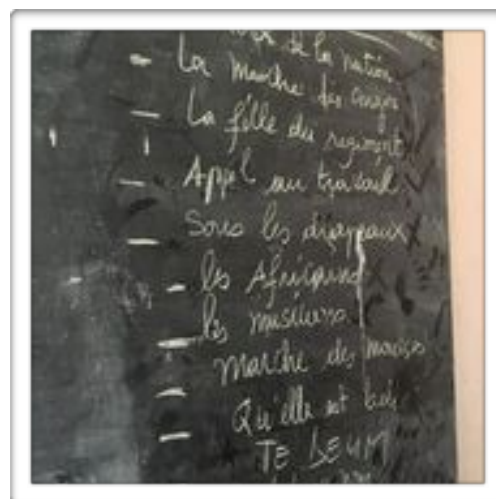 de la nation
- La Marche des anges
- La fille du regiment
- Appel au travail
- Sous les drapeaux
- les Africains
- les musiciens
- Marche des
- Qu'elle est belle
TE DEUM